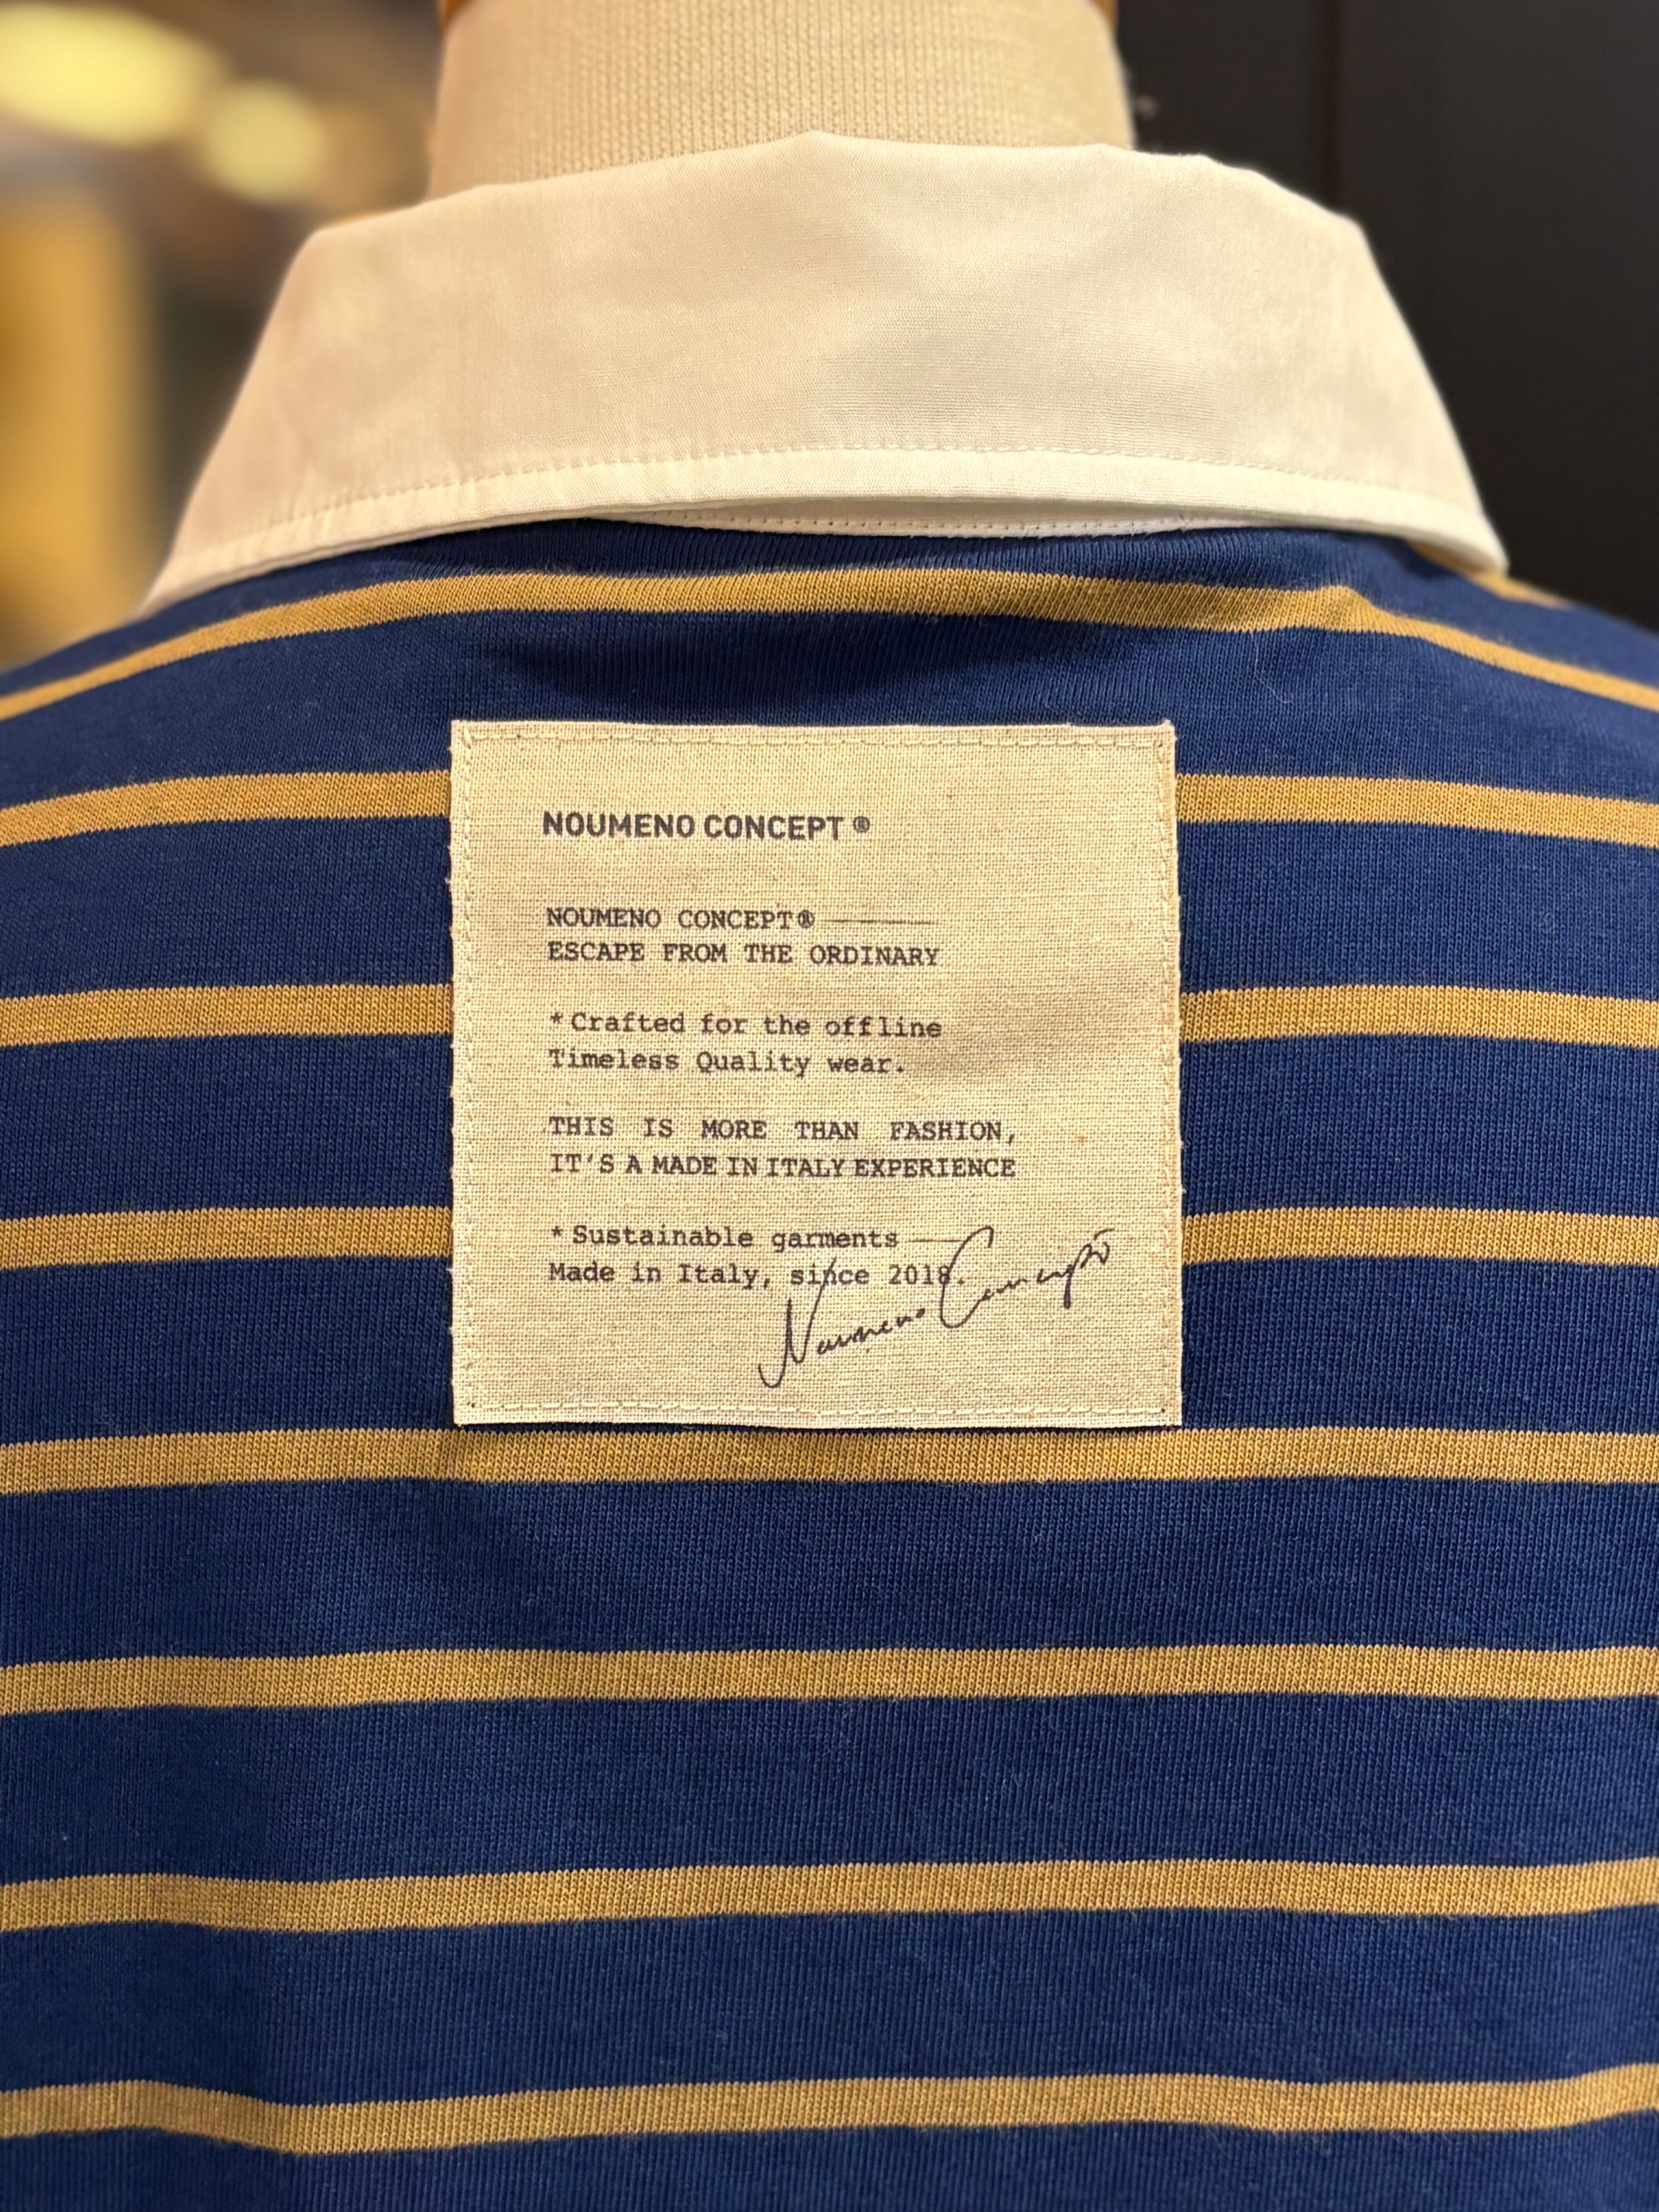 NOUMENO CONCEPT ®
NOUMENO CONCEPT®
ESCAPE FROM THE ORDINARY
*Crafted for the offline
Timeless Quality wear.
THIS IS MORE THAN FASHION,
IT'S A MADE IN ITALY EXPERIENCE
*Sustainable garments
Made in Italy, since 2018.
Noumeno Concept